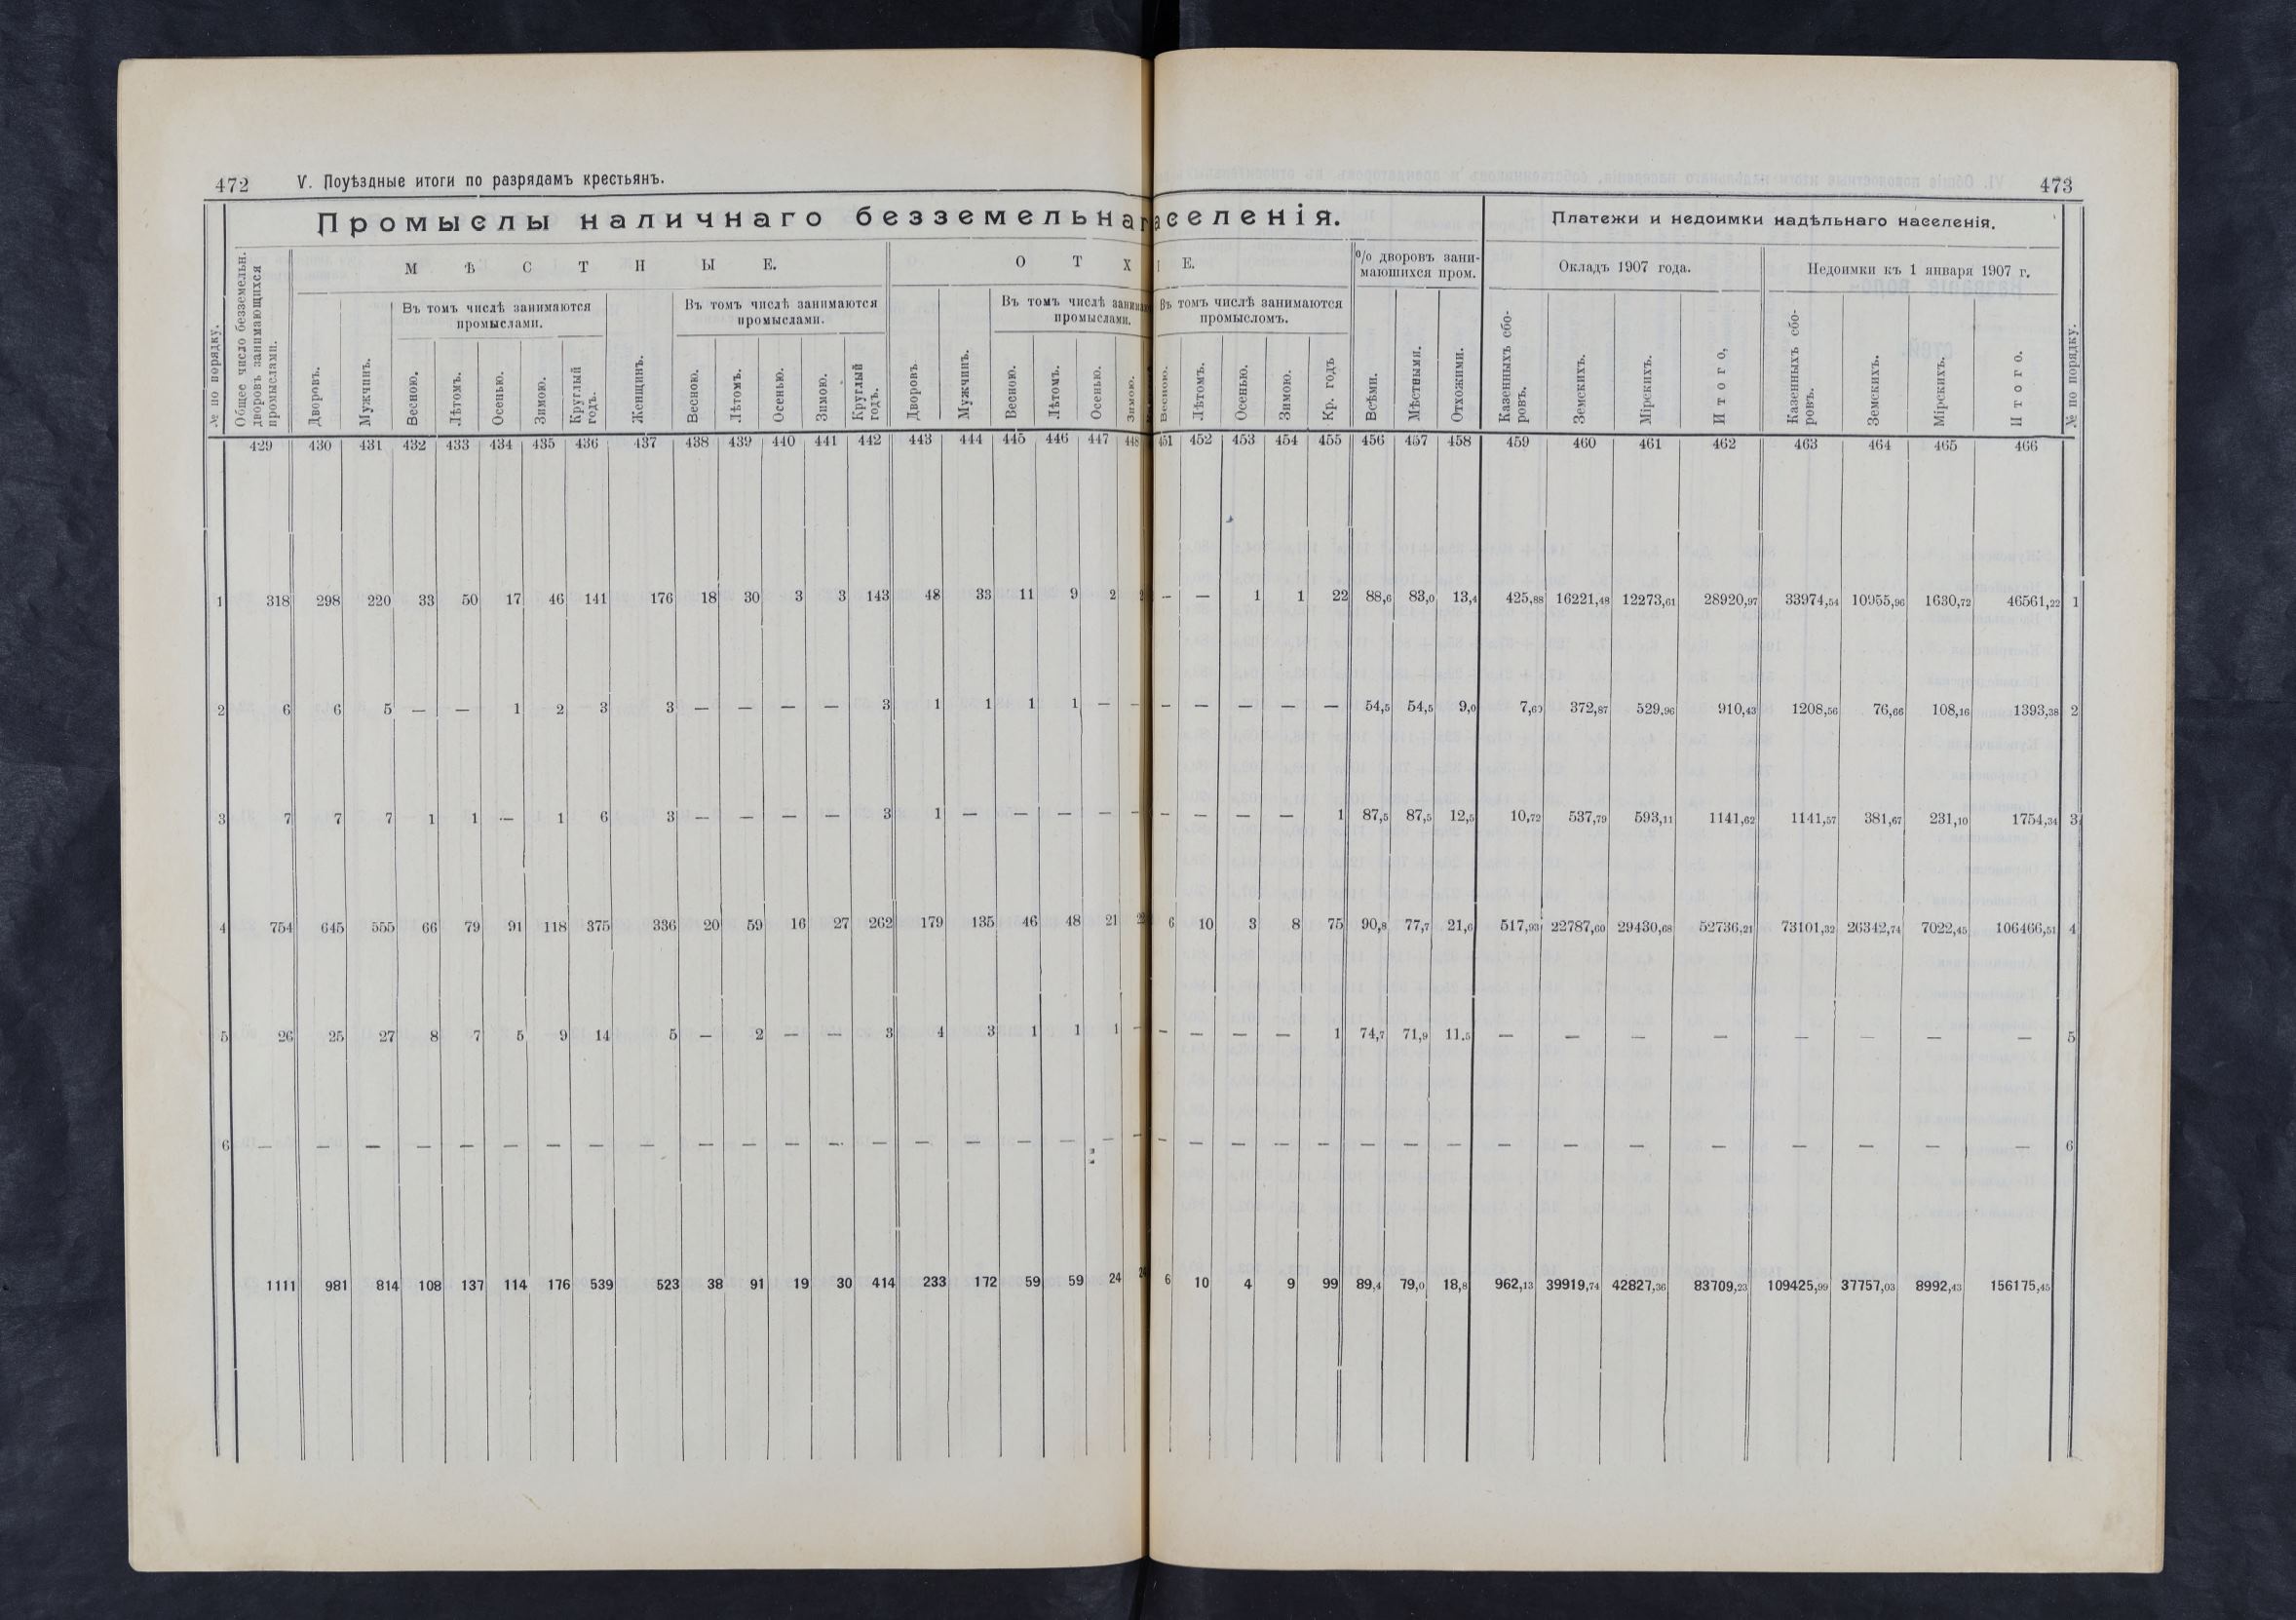 472 V. Поуѣздные итоги по разрядамъ крестьянъ.
473
Промыслы наличнаго безземельнаг
аселенія.
Платежи и недоимки надѣльнаго населенія.
№ по порядку.
Общее число безземельн. дворовъ занимающихся промыслами.
МѢСТНЫЕ.
ОТХ
ІЕ.
% дворовъ зани-
мающихся пром.
Окладъ 1907 года.
Недоимки къ 1 января 1907 г.
№ по порядку.
Дворовъ.
Мужчинъ.
Въ томъ числѣ занимаются
промыслами.
Весною.
Лѣтомъ.
Осенью.
Зимою.
Круглый годъ.
Женщинъ.
Въ томъ числѣ занимаются
промыслами.
Весною.
Лѣтомъ.
Осенью.
Зимою.
Круглый годъ.
Дворовъ
Мужчинъ.
Въ томъ числѣ
промыслами.
Весною.
Лѣтомъ.
Осенью.
Зимою.
Въ томъ числѣ занимаются
промысломъ.
Весною.
Лѣтомъ.
Осенью.
Зимою.
Кр. годъ
Всѣми.
Мѣстными.
Отхожими.
Казенныхъ сбо-
ровъ.
Земскихъ.
Мірскихъ.
Итого,
Казенныхъ сбо-
ровъ.
Земскихъ.
Мірскихъ.
Итого.
429 430 431 432 433 434 435 436 437 438 439 440 441 442 443 444 445 446 447 448 451 452 453 454 455 456 457 458 459 460 461 462 463 464 465 466
1 318 298 220 33 50 17 46 141 176 18 30 3 3 143 48 33 11 9 2 2 — — 1 1 22 88,6 83,0 13,4 425,88 16221,48 12273,61 28920,97 33974,54 10955,96 1630,72 46561,22 1
2 6 6 5 — — 1 2 3 3 — — — — 3 1 1 1 1 — — — — — — — 54,5 54,5 9,0 7,60 372,87 529,96 910,43 1208,56 76,66 108,16 1393,38 2
3 7 7 7 1 1 — 1 6 3 — — — — 3 1 — — — — — — — — — 1 87,5 87,5 12,5 10,72 537,79 593,11 1141,62 1141,57 381,67 231,10 1754,34 3
4 754 645 555 66 79 91 118 375 336 20 59 16 27 262 179 135 46 48 21 22 6 10 3 8 75 90,8 77,7 21,6 517,93 22787,60 29430,68 52736,21 73101,32 26342,74 7022,45 106466,51 4
5 26 25 27 8 7 5 9 14 5 — 2 — — 3 4 3 1 1 1 — — — — — 1 74,7 71,9 11,5 — — — — — — — — 5
6 — — — — — — — — — — — — — — — — — — — — — — — — — — — — — — — — — — — — 6
1111 981 814 108 137 114 176 539 523 38 91 19 30 414 233 172 59 59 24 24 6 10 4 9 99 89,4 79,0 18,8 962,13 39919,74 42827,36 83709,23 109425,99 37757,03 8992,43 156175,45